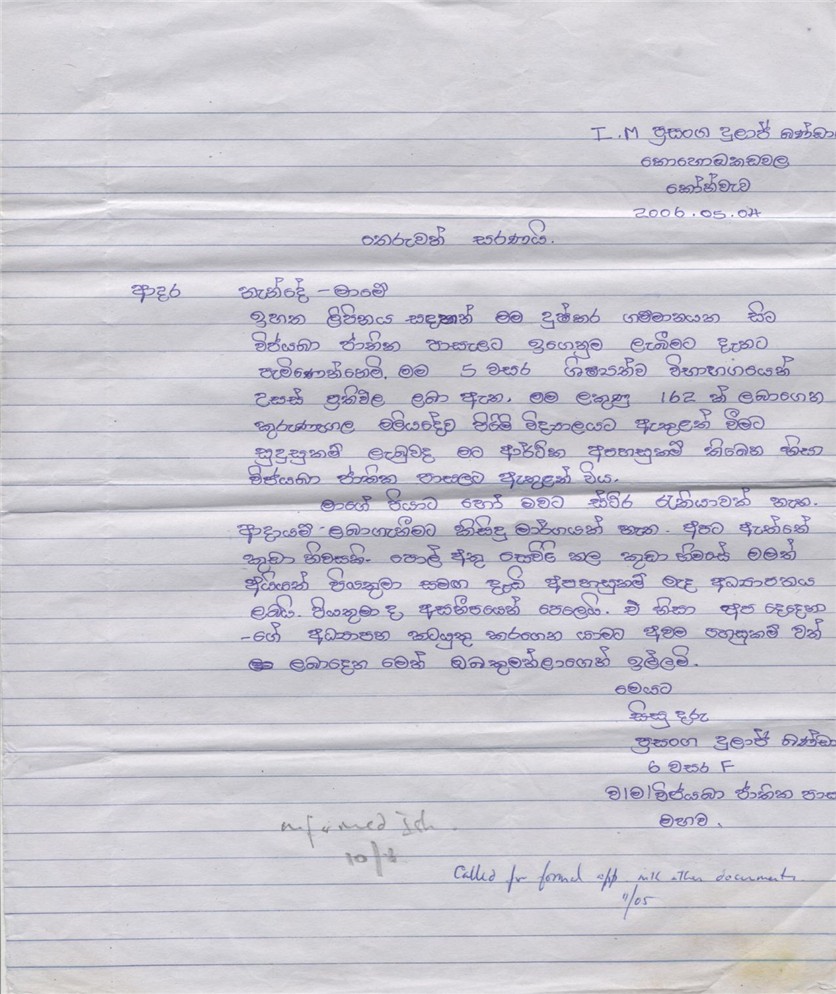 I.M ප්‍රසංග දුලාජ් බණ්ඩා
පොහොඩකඩවල
කෝන්වැව
2006.05.04
තෙරුවන් සරණයි.
ආදර නැන්දේ - මාමේ
ඉහත ලිපිනය සඳහන් මම දුෂ්කර ගම්මානයක සිට
විජයබා ජාතික පාසැලට ඉගෙනුම ලැබීමට දැනට
පැමිණෙන්නෙමි. මම 5 වසර ශිෂ්‍යත්ව විභාගයෙන්
උසස් ප්‍රතිඵල ලබා ඇත. මම ලකුණු 162 ක් ලබාගෙන
කුරුණෑගල මලියදේව පිරිමි විද්‍යාලයට ඇතුළත් වීමට
සුදුසුකම් ලැබුවද මට ආර්ථික අපහසුකම් තිබෙන නිසා
විජයබා ජාතික පාසලට ඇතුළත් විය.
මාගේ පියාට හෝ මවට ස්ථිර රැකියාවක් නැත.
ආදායම් ලබාගැනීමට කිසිදු මාර්ගයක් නැත. අපට ඇත්තේ
කුඩා නිවසකි. පොල් අතු සෙවිලි කල කුඩා නිවසේ මමත්
අයියත් පියතුමා සමඟ දැඩි අපහසුකම් මැද අධ්‍යාපනය
ලබයි. පියතුමා ද අසනීපයෙන් පෙලෙයි. ඒ නිසා අප දෙදෙනා
-ගේ අධ්‍යාපන කටයුතු කරගෙන යාමට අවම පහසුකම් වත්
ලබාදෙන මෙන් ඔබතුමන්ලාගෙන් ඉල්ලමි.
මෙයට
සිසු දරු
ප්‍රසංග දුලාජ් බණ්ඩා
6 වසර F
ව/ම/විජයබා ජාතික පාස
මහව.
informed
10/8
Called for formal app with other documents.
11/05